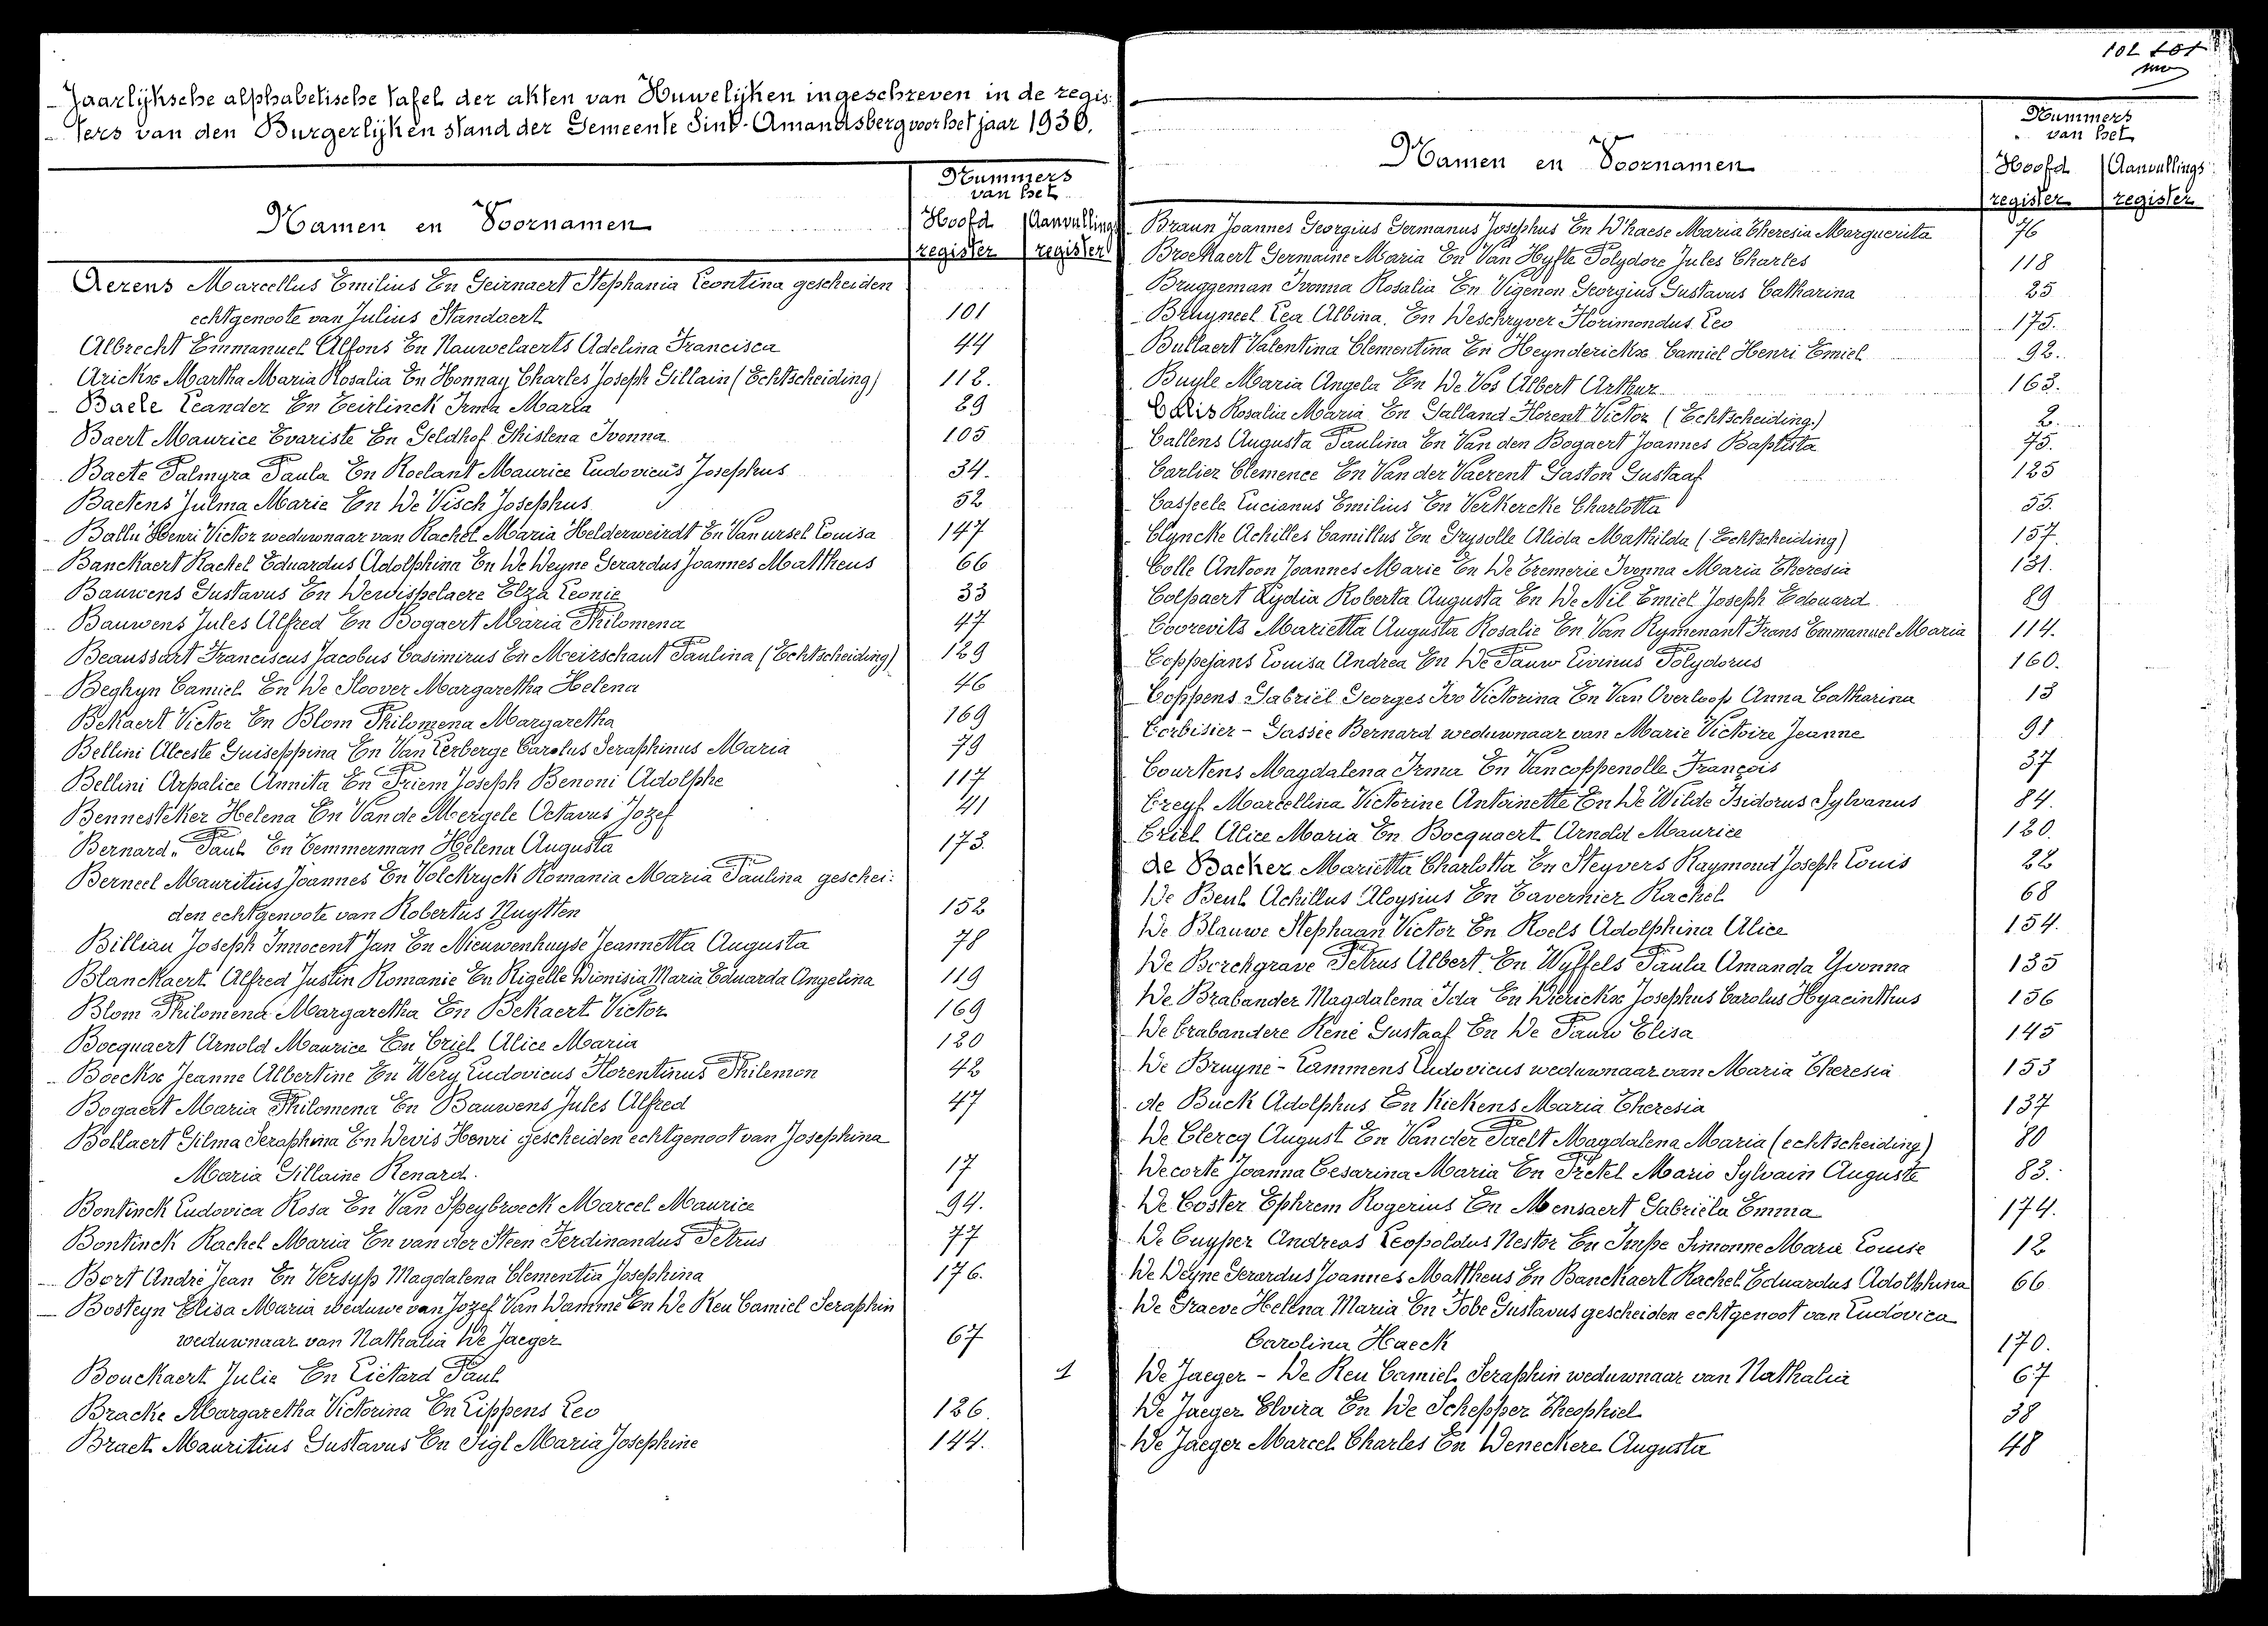 Jaarlijksche alphabetische tafel der akten van Huwelijken ingeschreven in de regis-
ters van den Burgerlijken stand der Gemeente Sint-Amandsberg voor het jaar 1930.
Namen en Voornamen
Nummers
van het
Hoofd register
Aanvullings register
Aerens Marcellus Emilius En Geirnaert Stephania Leontina gescheiden
echtgenoote van Julius Standaert 101
Albrecht Emmanuel Alfons En Nauwelaerts Adelina Francisca 44
Arickx Martha Maria Rosalia En Honnay Charles Joseph Gillain (Echtscheiding) 112.
Baele Leander En Teirlinck Irma Maria 29
Baert Maurice Evariste En Geldhof Ghislena Ivonna 105
Baete Palmyra Paula En Roelant Maurice Ludovicus Josephus 34.
Baetens Julma Marie En De Visch Josephus 52
Ballu Henri Victor weduwnaar van Rachel Maria Helderweirdt En Van ursel Louisa 147
Banckaert Rachel Eduardus Adolphina En De Deyne Gerardus Joannes Mattheus 66
Bauwens Gustavus En Dewispelaere Elza Leonie 33
Bauwens Jules Alfred En Bogaert Maria Philomena 47
Beaussart Franciscus Jacobus Casimirus En Meirschaut Paulina (Echtscheiding) 129
Beghyn Camiel En De Sloover Margaretha Helena 46
Bekaert Victor En Blom Philomena Margaretha 169
Bellini Alceste Guiseppina En Van Lerberge Carolus Seraphinus Maria 79
Bellini Arpalice Annita En Priem Joseph Benoni Adolphe 117
Bennesteker Helena En Van de Mergele Octavus Jozef 41
Bernard Paul En Temmerman Helena Augusta 173.
Berneel Mauritius Joannes En Volckryck Romania Maria Paulina geschei:
den echtgenoote van Robertus Nuytten 152
Billiau Joseph Innocent Jan En Nieuwenhuyse Jeannetta Augusta 78
Blanckaert Alfred Justin Romanie En Rigelle Dionisia Maria Eduarda Angelina 119
Blom Philomena Margaretha En Bekaert Victor 169
Bocquaert Arnold Maurice En Criel Alice Maria 120
Boeckx Jeanne Albertine En Wery Ludovicus Florentinus Philemon 42
Bogaert Maria Philomena En Bauwens Jules Alfred 47
Bollaert Gilma Seraphina En Devis Henri gescheiden echtgenoot van Josephina
Maria Gillaine Renard. 17
Bontinck Ludovica Rosa En Van Speybroeck Marcel Maurice 94.
Bontinck Rachel Maria En van der Steen Ferdinandus Petrus 77
Bort André Jean En Versyp Magdalena Clementia Josephina 176.
Bosteyn Elisa Maria weduwe van Jozef Van Damme En De Reu Camiel Seraphin
weduwnaar van Nathalia De Jaeger 67
Bouckaert Julie En Liétard Paul 1
Bracke Margaretha Victorina En Lippens Leo 126.
Braet Mauritius Gustavus En Sigl Maria Josephine 144.
102 101
Namen en Voornamen
Nummers
van het
Hoofd register
Aanvullings register
Braun Joannes Georgius Germanus Josephus En D'haese Maria Theresia Marguerita 76
Broekaert Germaine Maria En Van Hyfte Polydore Jules Charles 118
Bruggeman Ivonna Rosalia En Vigenon Georgius Gustavus Catharina 25
Bruyneel Lea Albina. En Deschryver Florimondus Leo 175.
Bullaert Valentina Clementina En Heynderickx Camiel Henri Emiel 92.
Buyle Maria Angela En De Vos Albert Arthur 163.
Calis Rosalia Maria En Galland Florent Victor (Echtscheiding.) 2.
Callens Augusta Paulina En Van den Bogaert Joannes Baptista 75.
Carlier Clemence En Van der Vaerent Gaston Gustaaf 125
Casteele Lucianus Emilius En Verkercke Charlotta 55.
Clyncke Achilles Camillus En Grysolle Alida Mathilda (Echtscheiding) 157.
Colle Antoon Joannes Marie En De Tremerie Ivonna Maria Theresia 131.
Colpaert Lydia Roberta Augusta En De Nil Emiel Joseph Edouard 89
Coorevits Marietta Augusta Rosalie En Van Rymenant Frans Emmanuel Maria 114.
Coppejans Louisa Andrea En De Pauw Livinus Polydorus 160.
Coppens Gabriël Georges Ivo Victorina En Van Overloop Anna Catharina 13
Corbisier - Gassie Bernard weduwnaar van Marie Victoire Jeanne 91
Courtens Magdalena Irma En Vancoppenolle François 37
Creyf Marcellina Victorine Antoinette En De Wilde Isidorus Sylvanus 84.
Criel Alice Maria En Bocquaert Arnold Maurice 120.
de Backer Marietta Charlotta En Steyvers Raymond Joseph Louis 22
De Beul Achillus Aloysius En Tavernier Rachel 68
De Blauwe Stephaan Victor En Roels Adolphina Alice 154.
De Borchgrave Petrus Albert. En Wyffels Paula Amanda Yvonna 135
De Brabander Magdalena Ida En Dierickx Josephus Carolus Hyacinthus 156
De brabandere René Gustaaf En De Pauw Elisa 145
De Bruyne - Lammens Ludovicus weduwnaar van Maria Theresia 153
de Buck Adolphus En Kiekens Maria Theresia 137
De Clercq August En Van der Paelt Magdalena Maria (echtscheiding) 80
Decorte Joanna Cesarina Maria En Pretel Mario Sylvain Auguste 83.
De Coster Ephrem Rogerius En Mensaert Gabriëla Emma 174.
De Cuyper Andreas Leopoldus Nestor En Impe Simonne Marie Louise 12
De Deyne Gerardus Joannes Mattheus En Banckaert Rachel Eduardus Adolphina 66
De Graeve Helena Maria En Tobe Gustavus gescheiden echtgenoot van Ludovica
Carolina Haeck 170.
De Jaeger - De Reu Camiel Seraphin weduwnaar van Nathalia 67
De Jaeger Elvira En De Schepper Theophiel 38
De Jaeger Marcel Charles En Deneckere Augusta 48